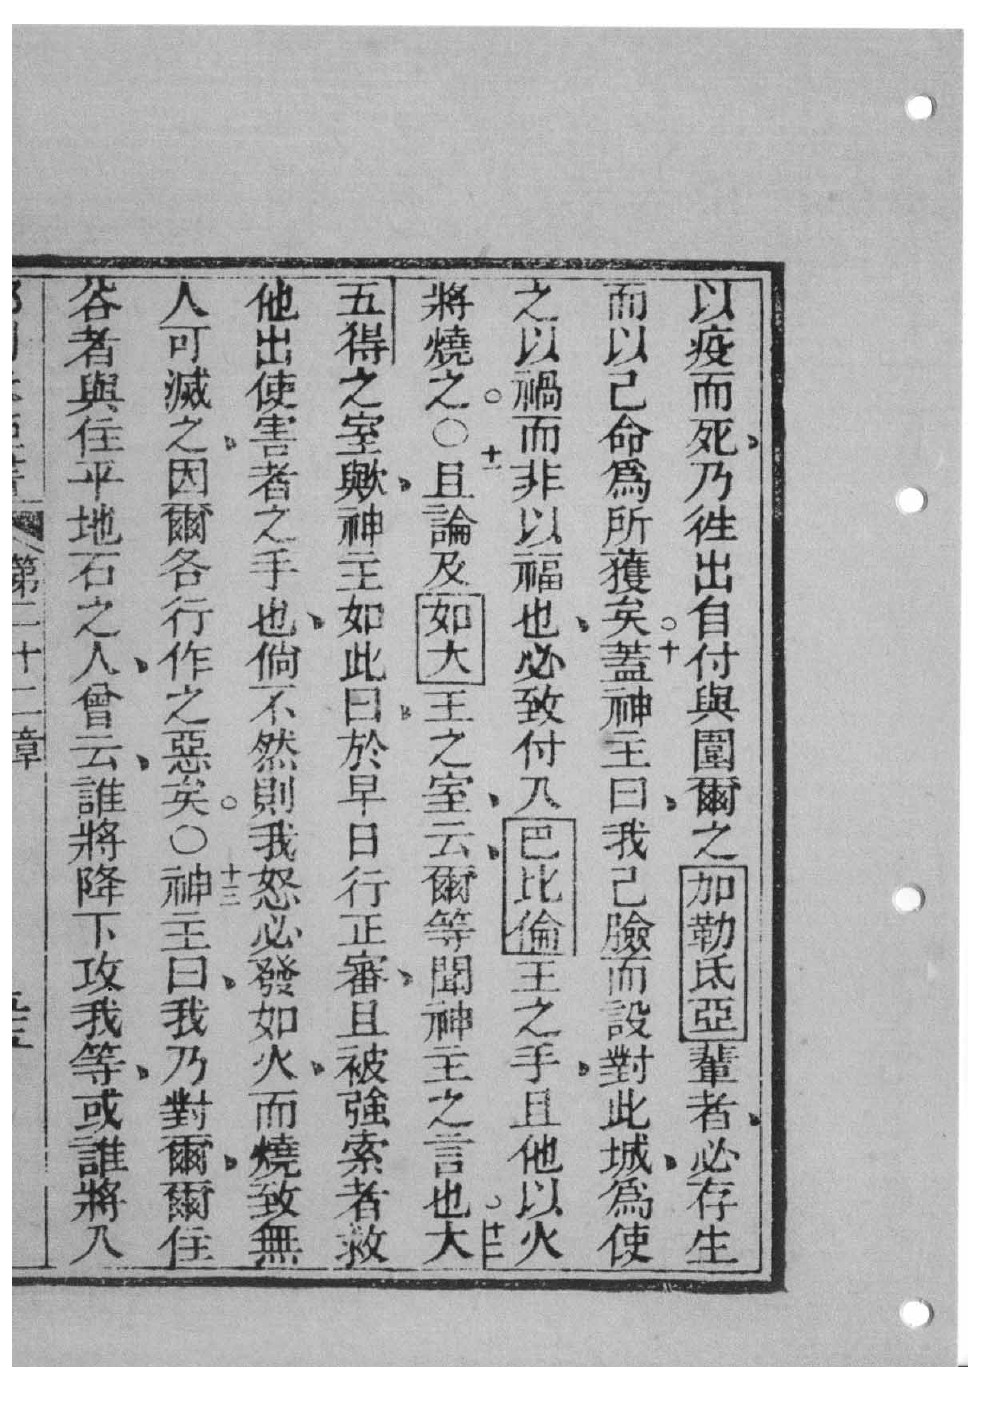 以疫而死、乃徃出自付與圍爾之加勒氐亞輩者、必存生
而以己命爲所獲矣。十蓋神主曰、我己臉而設對此城、爲使
之以禍而非以福也、必致付入巴比倫王之手、且他以火
將燒之。○十一且論及如大王之室、云、爾等聞神主之言也。十二大
五得之室歟、神主如此曰、於早日行正審、且被強索者救
他出使害者之手也、倘不然則我怒必發如火、而燒致無
人可滅之、因爾各行作之惡矣。○十三神主曰、我乃對爾、爾住
谷者與住平地石之人、曾云、誰將降下攻我等、或誰將入
第二十二章